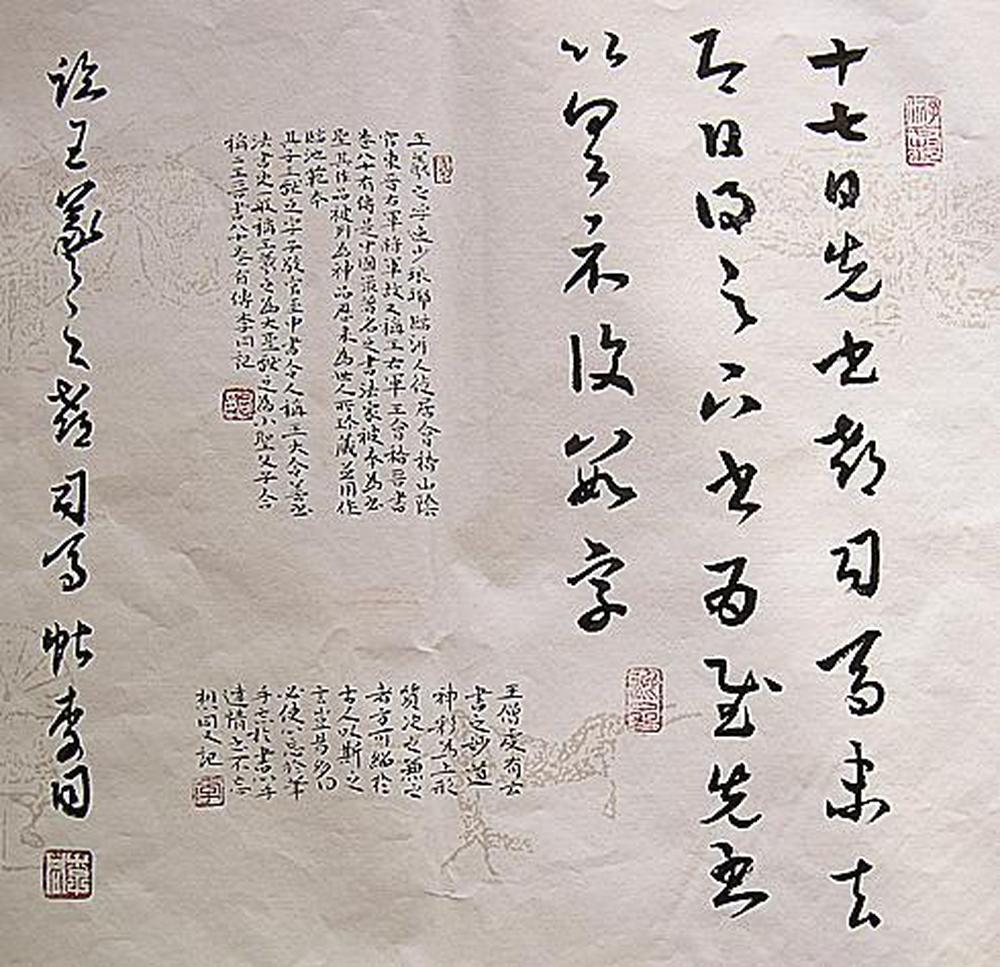 十七日先書郗司馬未去
即日得足下書為慰先書
以具示復數字
王羲之字逸少琅琊臨沂人後居會稽山陰
官至右軍將軍故又稱王右軍王會稽晉書
卷八十有傳是中國最著名之書法家被奉為書
聖其作品被列為神品歷來為世人所珍藏並用作
臨池範本
其子王獻之字子敬官至中書令人稱王大令
法書史一般稱王羲之為大聖獻之為小聖父子合
稱二王晉書八十卷有傳李同記
王僧虔有云
書之妙道
神彩為上形
質次之兼之
者方可紹於
古人以斯之
言豈易多得
必使心忘於筆
手忘於書心手
達情書不忘
想同又記
臨王羲之之郗司馬帖李同